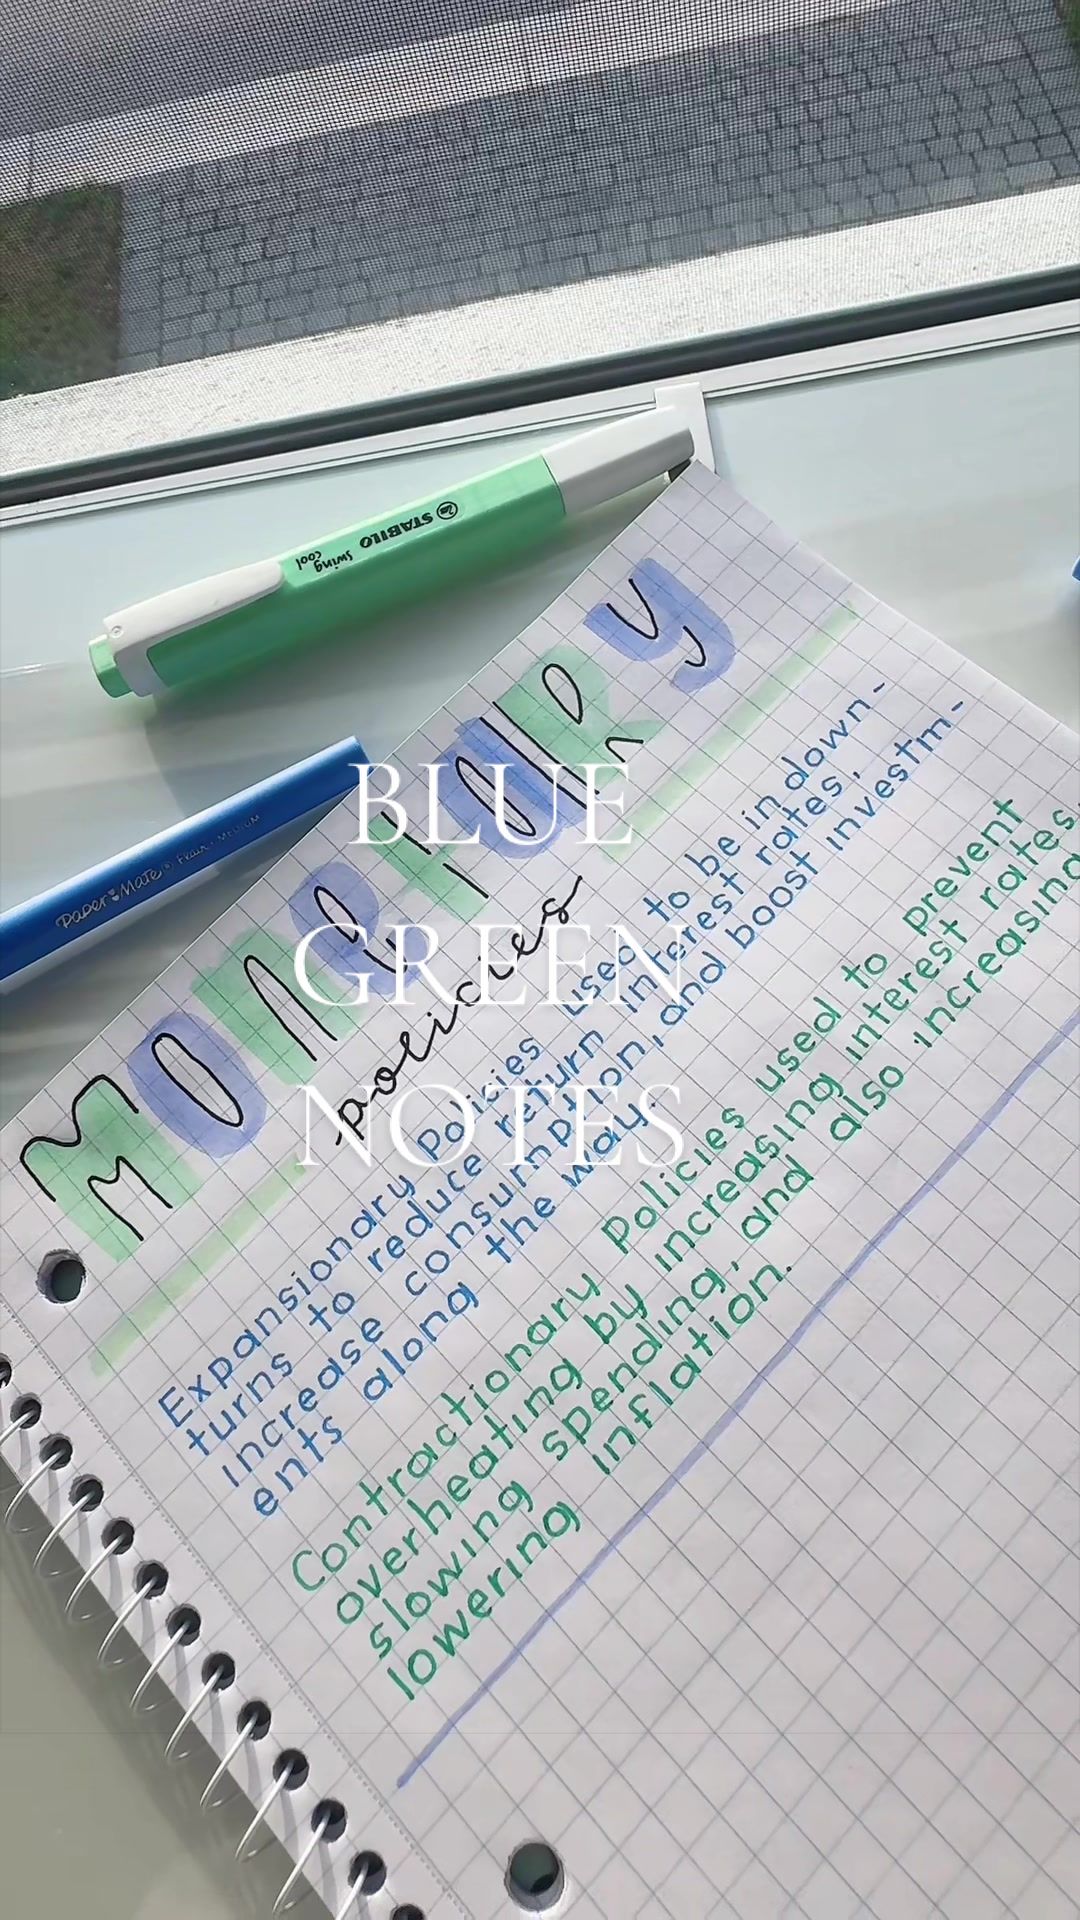 STABILO swing cool
Paper Mate® Flair · MEDIUM
MONETARY
policies
BLUE
GREEN
NOTES
Expansionary Policies used to be in down-
turns to reduce return interest rates,
increase consumption, and boost investm-
ents along the way.
Contractionary policies used to prevent
overheating by increasing interest rates,
slowing spending, and also increasing
lowering inflation.